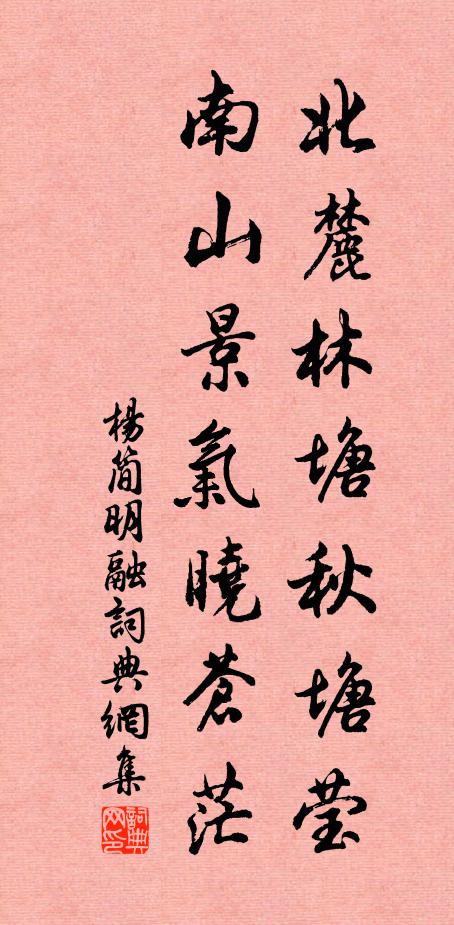 北麓林塘秋塘莹
南山景氣曉蒼茫
楊簡明融詞典網集
詞典
网印